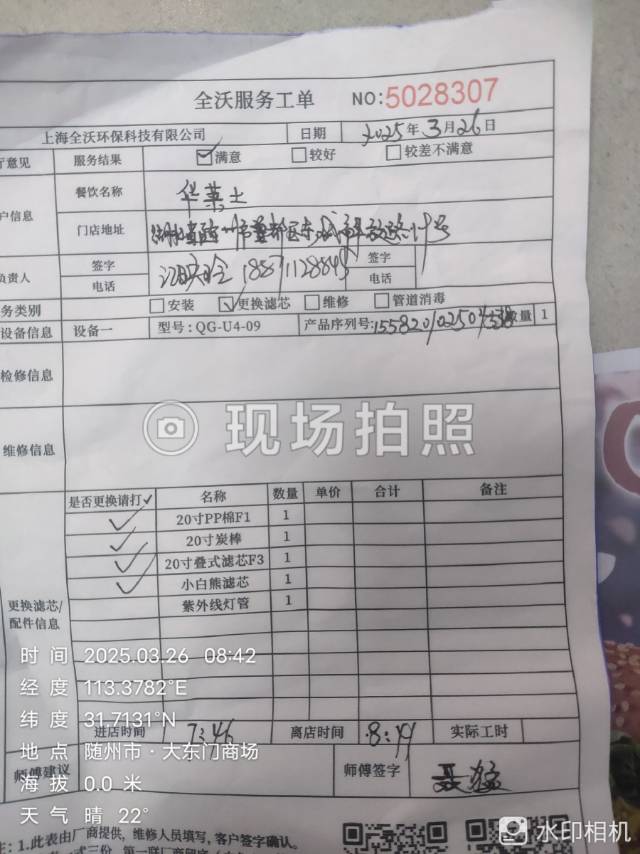 全沃服务工单 NO:5028307
上海全沃环保科技有限公司 日期 2025年3月26日
厅意见 服务结果 满意 较好 较差不满意
餐饮名称 华莱士
户信息
门店地址
负责人 签字 签字
电话 电话
务类别 安装 更换滤芯 维修 管道消毒
设备信息 设备一 型号:QG-U4-09 产品序列号: 数量 1
检修信息
现场拍照
维修信息
是否更换请打✓ 名称 数量 单价 合计 备注
✓ 20寸PP棉F1 1
✓ 20寸炭棒 1
✓ 20寸叠式滤芯F3 1
✓ 小白熊滤芯 1
紫外线灯管 1
更换滤芯/
配件信息
时间 2025.03.26 08:42
经度 113.3782°E
纬度 31.7131°N
进店时间 7:46 离店时间 实际工时
地点 随州市·大东门商场
师傅建议 师傅签字
海拔 0.0米
天气 晴 22°
注:1.此表由厂商提供,维修人员填写,客户签字确认。
水印相机